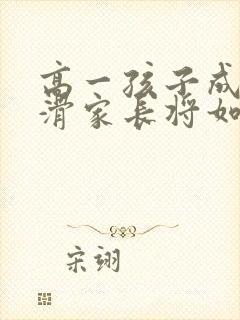 高一孩子成
滑家长将如
宋翊